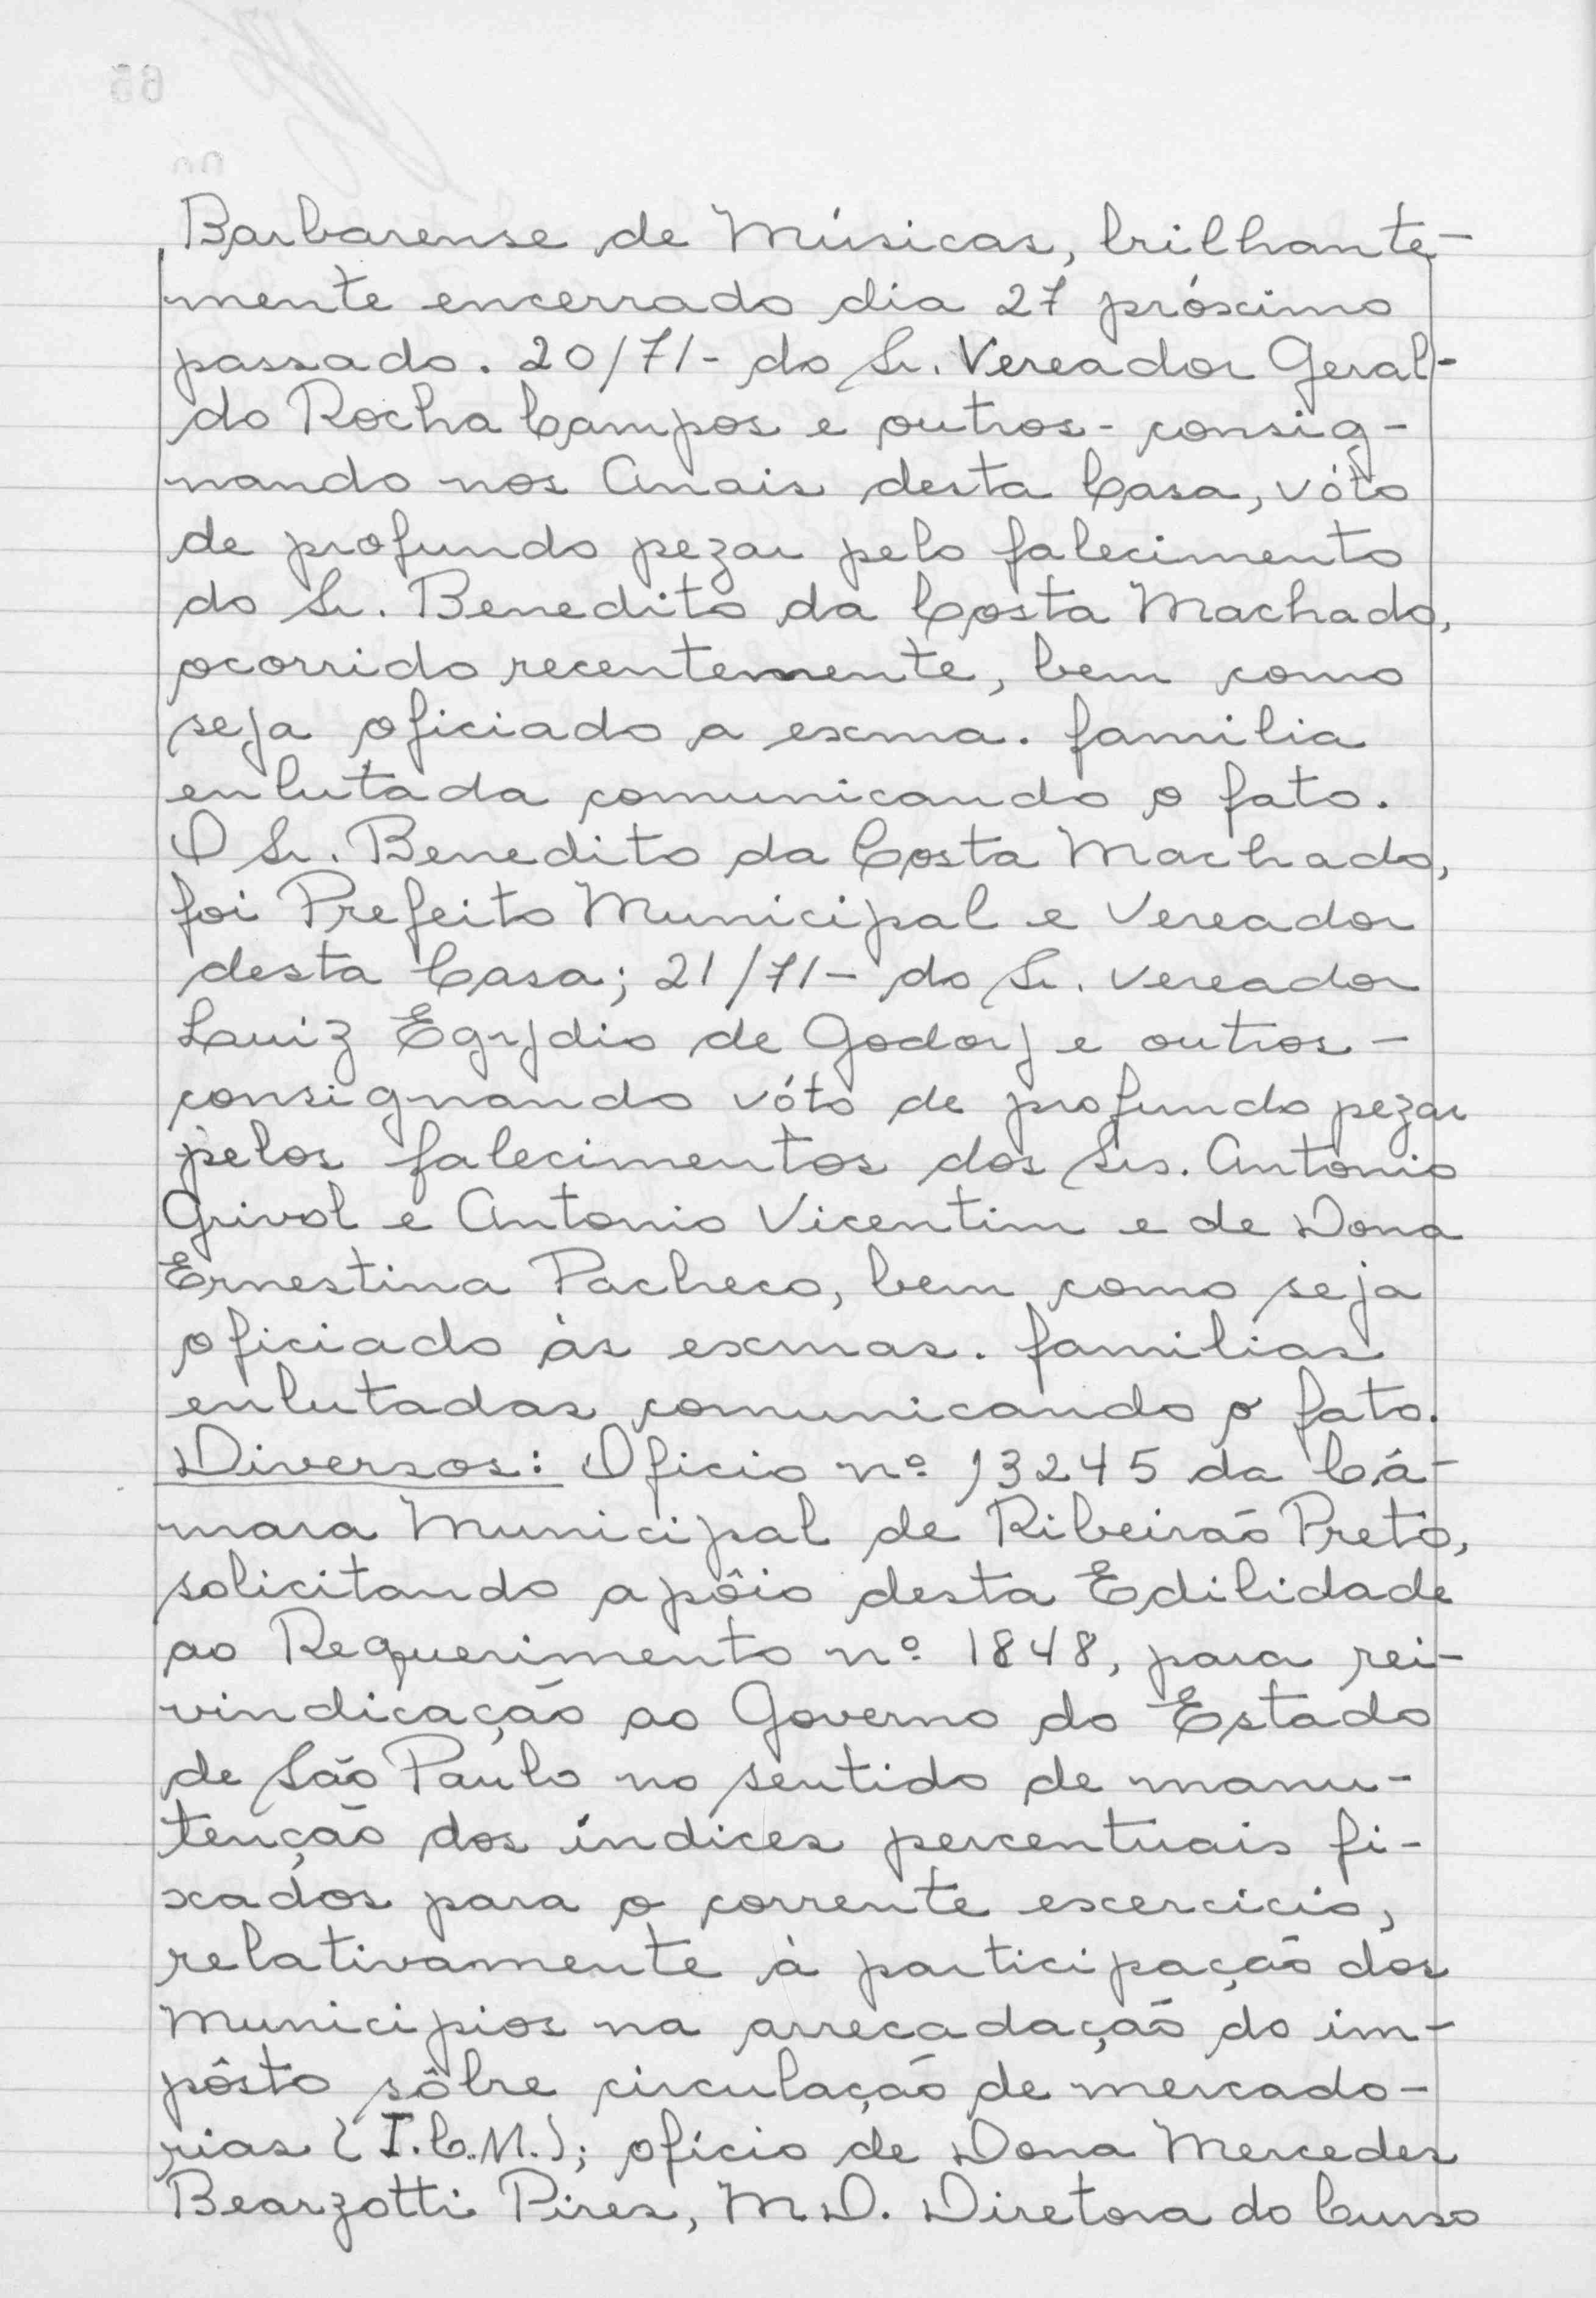 Barbarense de Músicas, brilhante-
mente encerrado dia 27 próximo
passado. 20/71- do Sr. Vereador Geral-
do Rocha Campos e outros - consig-
nando nos Anais desta Casa, vóto
de profundo pezar pelo falecimento
do Sr. Benedito da Costa Machado,
ocorrido recentemente, bem como
seja oficiado a exma. familia
enlutada comunicando o fato.
O Sr. Benedito da Costa Machado,
foi Prefeito Municipal e Vereador
desta Casa; 21/71- do Sr. vereador
Luiz Egydio de Godoy e outros -
consignando vóto de profundo pezar
pelos falecimentos dos Srs. Antonio
Grivol e Antonio Vicentim e de Dona
Ernestina Pacheco, bem como seja
oficiado às exmas. familias
enlutadas comunicando o fato.
Diversos: Oficio nº 13245 da Câ-
mara Municipal de Ribeirão Preto,
solicitando apôio desta Edilidade
ao Requerimento nº 1848, para rei-
vindicação ao Governo do Estado
de São Paulo no sentido de manu-
tenção dos índices percentuais fi-
xados para o corrente exercicio,
relativamente à participação dos
Municipios na arrecadação do im-
pôsto sôbre circulação de mercado-
rias (I.C.M.); ofício de Dona Mercedes
Bearzotti Pires, M.D. Diretora do Curso